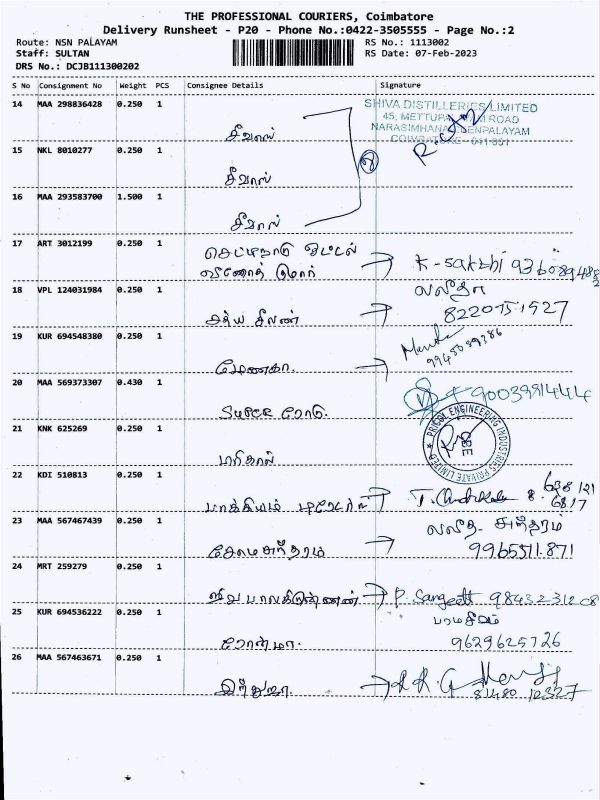 THE PROFESSIONAL COURIERS, Coimbatore
Delivery Runsheet - P20 - Phone No.:0422-3505555 - Page No.:2
Route: NSN PALAYAM RS No.: 1113002
Staff: SULTAN RS Date: 07-Feb-2023
DRS No.: DCJB111300202
S No Consignment No Weight PCS Consignee Details Signature
14 MAA 298836428 0.250 1 SHIVA DISTILLERIES LIMITED
45, METTUPALAYAM ROAD
NARASIMHANAICKENPALAYAM
COIMBATORE - 641 031
சீவாஸ்
15 NKL 8010277 0.250 1
சீவாஸ்
16 MAA 293583700 1.500 1
சீவாஸ்
17 ART 3012199 0.250 1 செட்டிநாடு ஓட்டல்
வினோத் குமார் K-Sakthi
18 VPL 124031984 0.250 1 லலிதா
சத்ய சீலன்
19 KUR 694548380 0.250 1
மேனகா.
20 MAA 569373307 0.430 1 9003991444
Super ரோடு.
21 KNK 625269 0.250 1 PRICOL ENGINEERING INDUSTRIES PRIVATE LIMITED
CBE
22 KDI 510813 0.250 1
பாக்கியம்
23 MAA 567467439 0.250 1 லலித சுந்தரம்
சோமசுந்தரம் 9965511871
24 MRT 259279 0.250 1
பாலகிருஷ்ணன் P. Sangeeth 9843231208
25 KUR 694536222 0.250 1 பரமசிவம்
9629625726
26 MAA 567463671 0.250 1
இந்துஜா